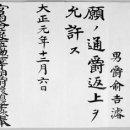 男爵兪吉濬
願ノ通爵返上ヲ
允許ス
大正元年十二月六日